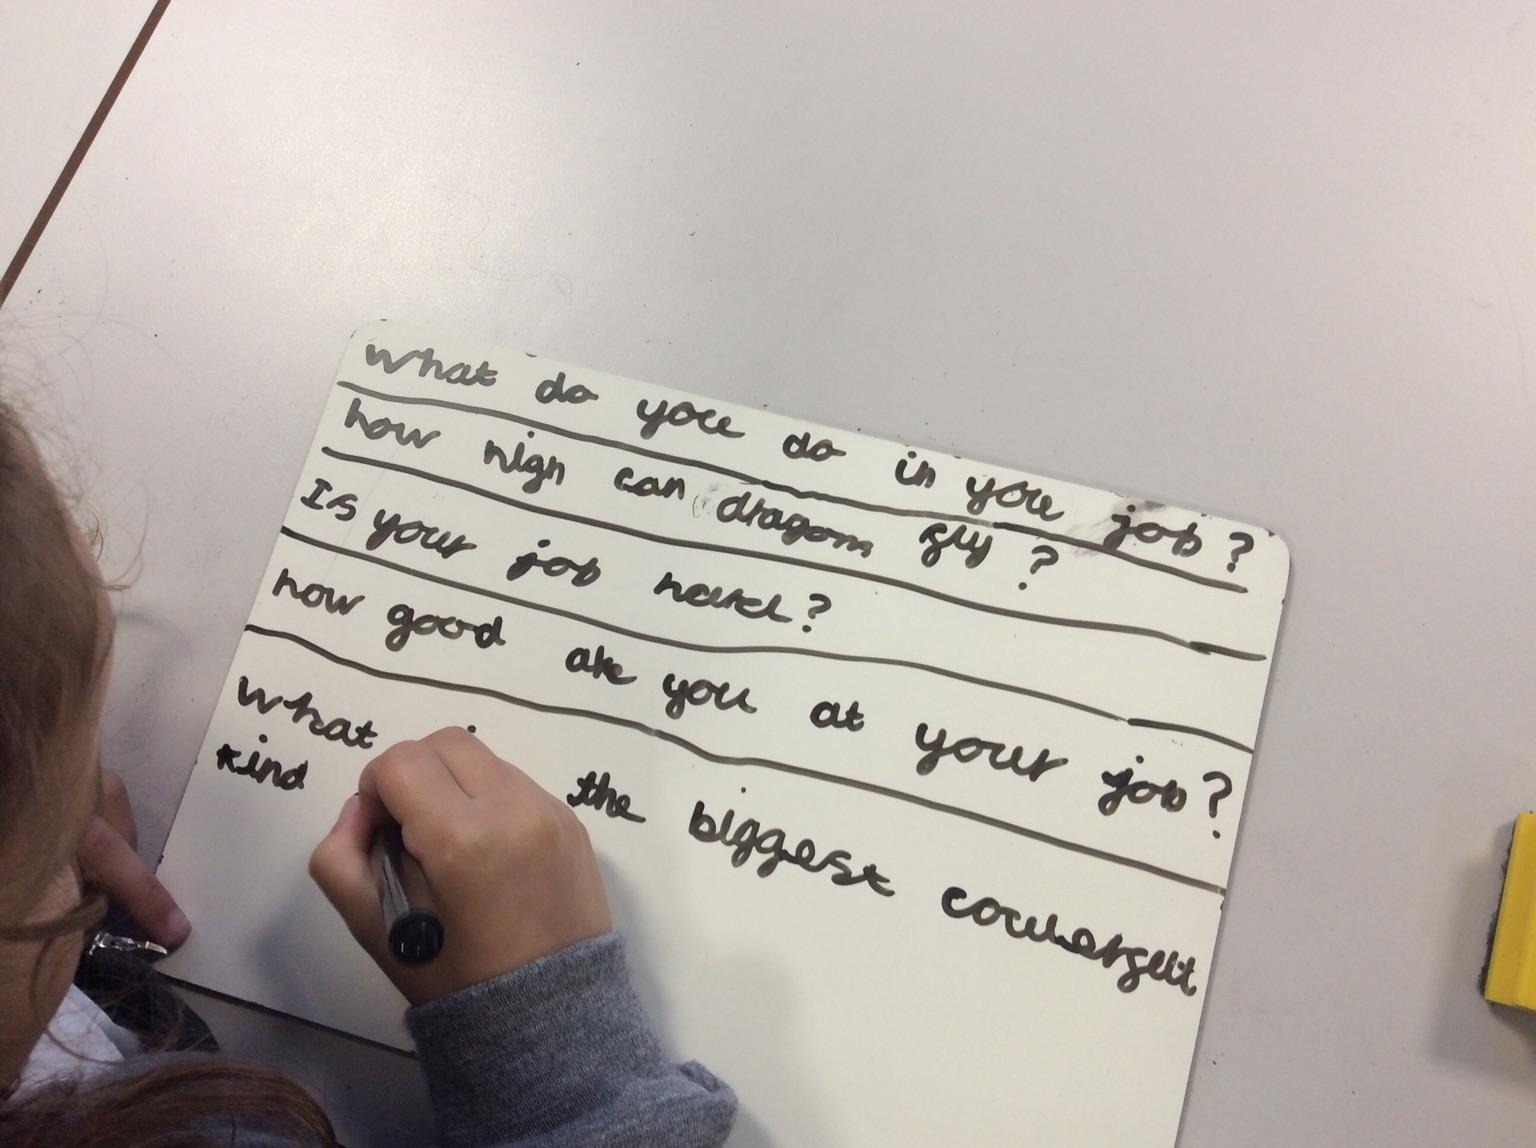 What do you do in you job?
how high can dragons fly?
Is your job hard?
how good are you at your job?
What the biggest
kind